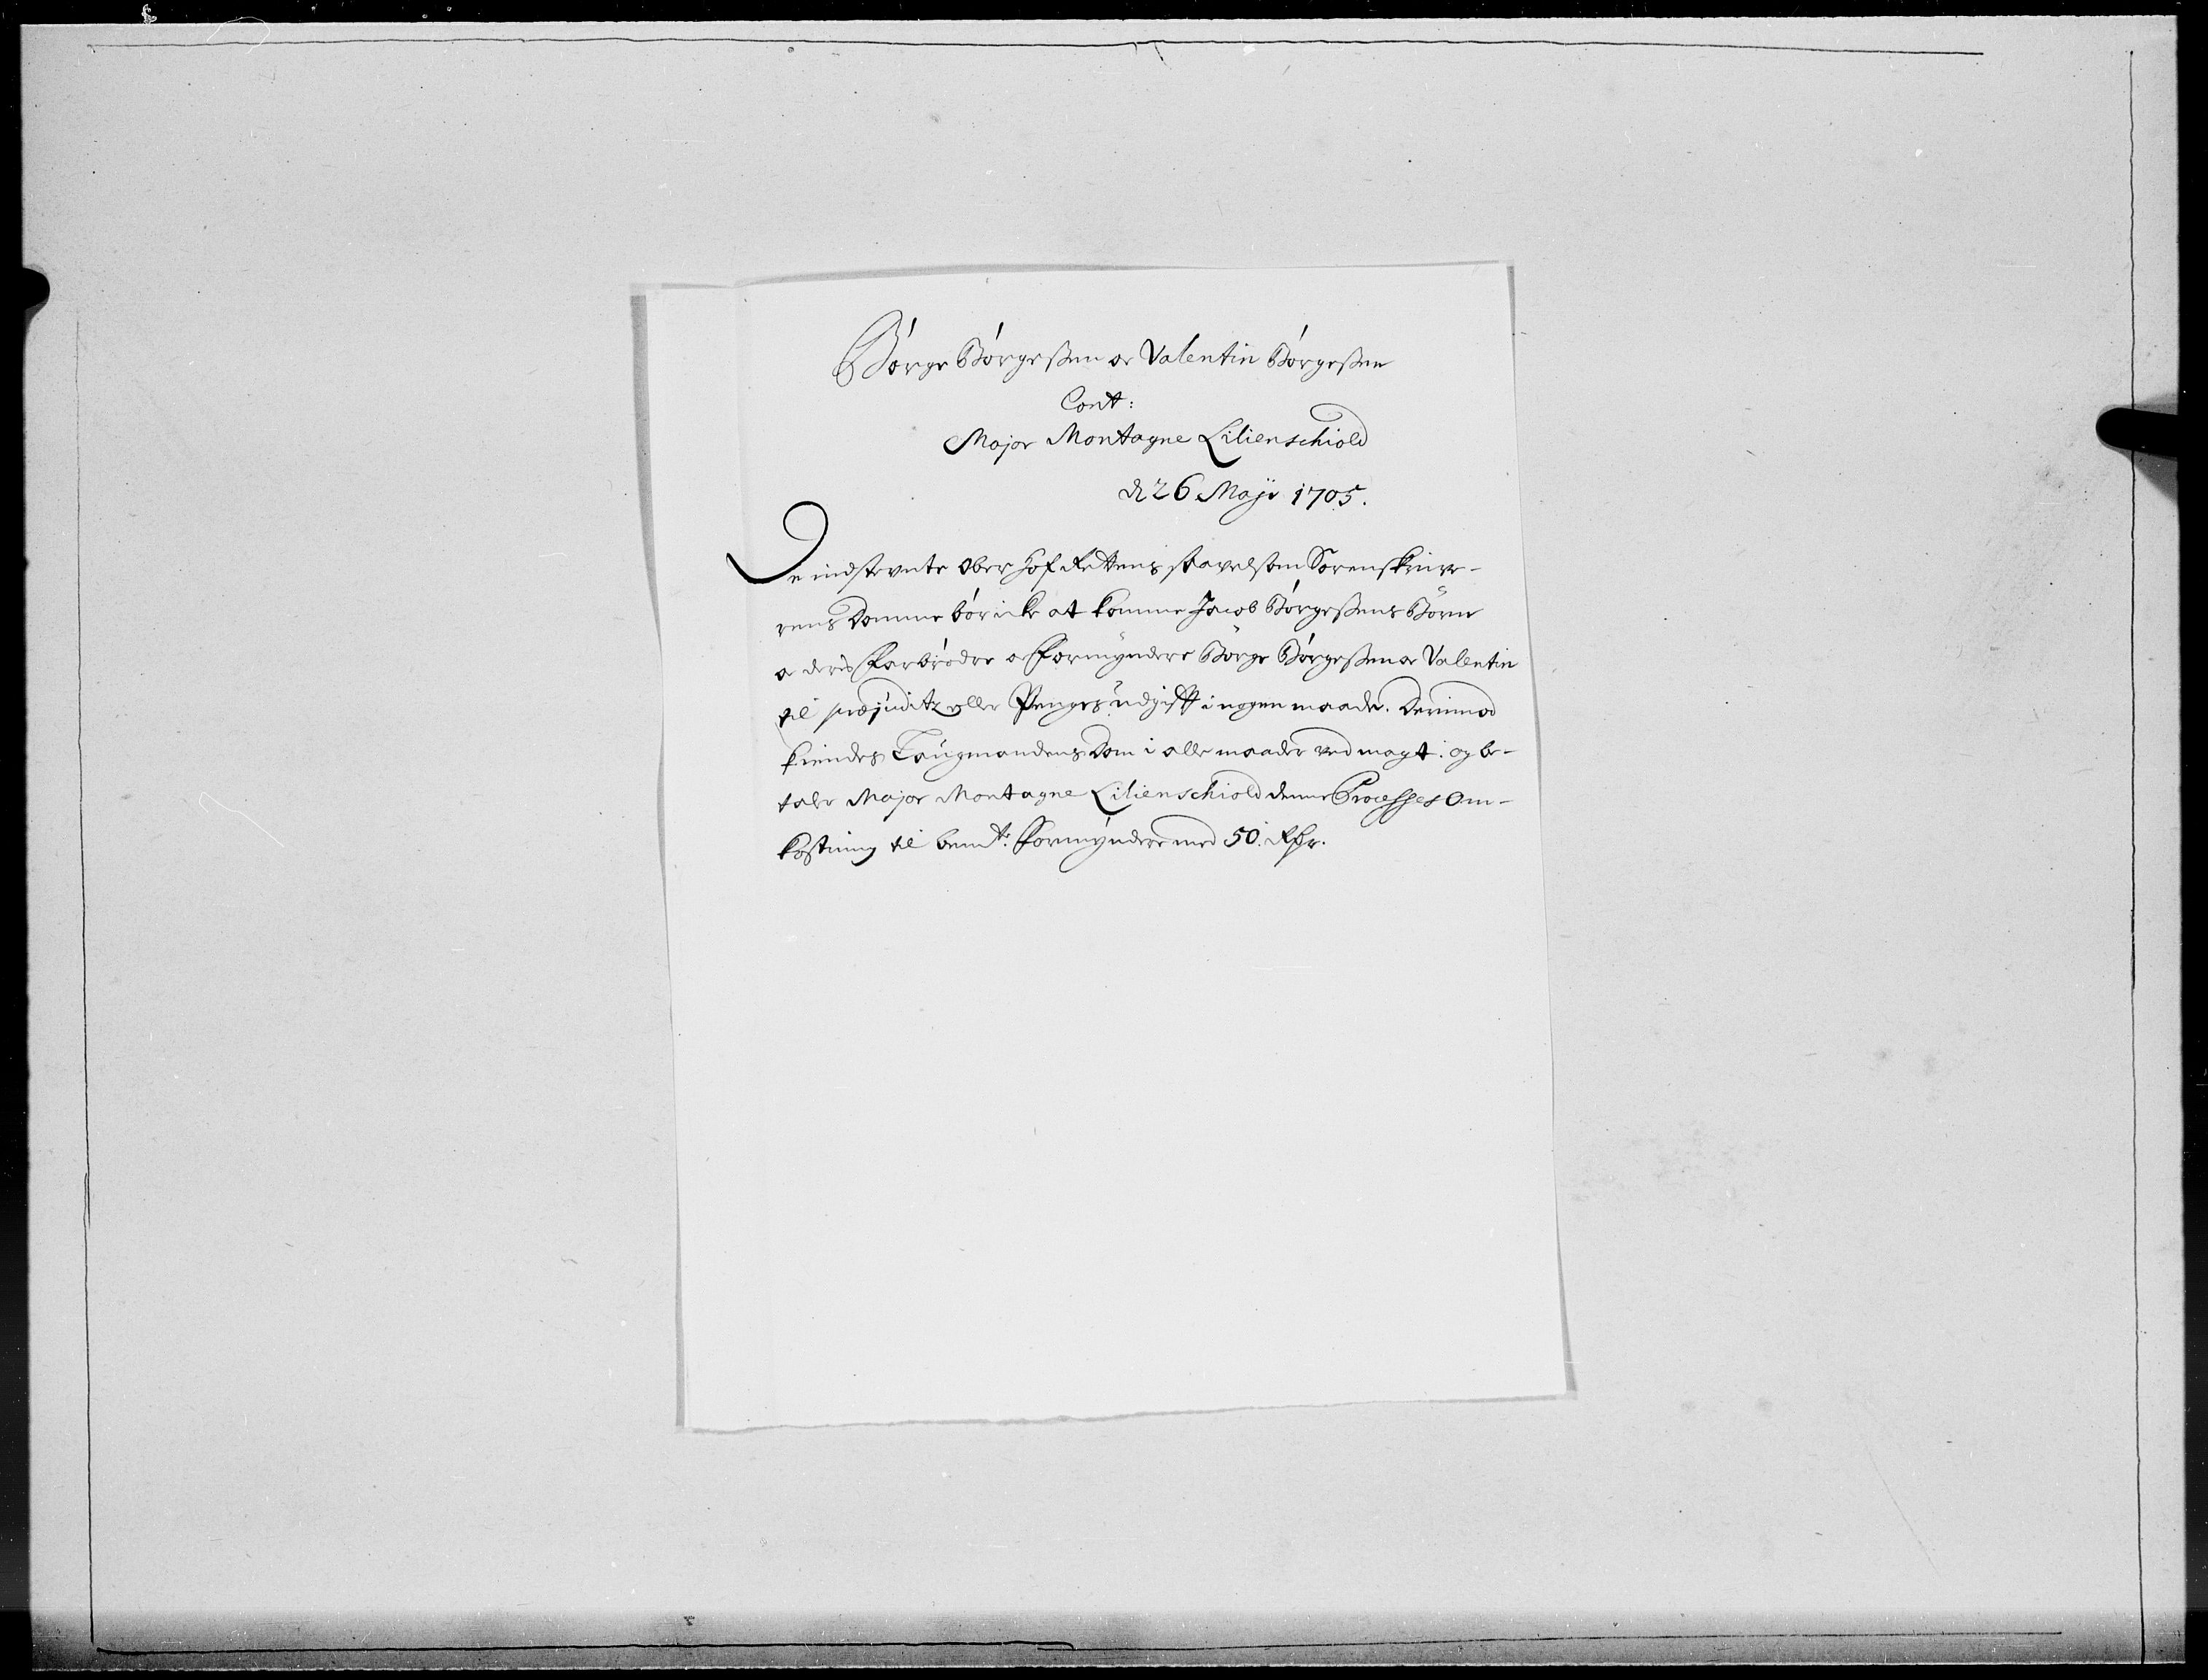 Børge Børgesßen oc Valentin Børgesßen
Cont:
Major Montagne Lilienschiold
d 26 Maji 1705.
De indstevnte Ober Hof Rettens saavelsom Sorenskrive-
rens Domme bør icke at komme Jacob Børgesßens Børn
oc deris Farbrødre oc Formyndere Børge Børgesßen oc Valentin
til præjuditz eller Penges udgifft i nogen maade. Derimod
kiendes Laugmandens Dom i alle maader ved magt. og be-
taler Major Montagne Lilienschiold denne Processes Om-
kostning til bemte. Formyndere med 50. Rdr.